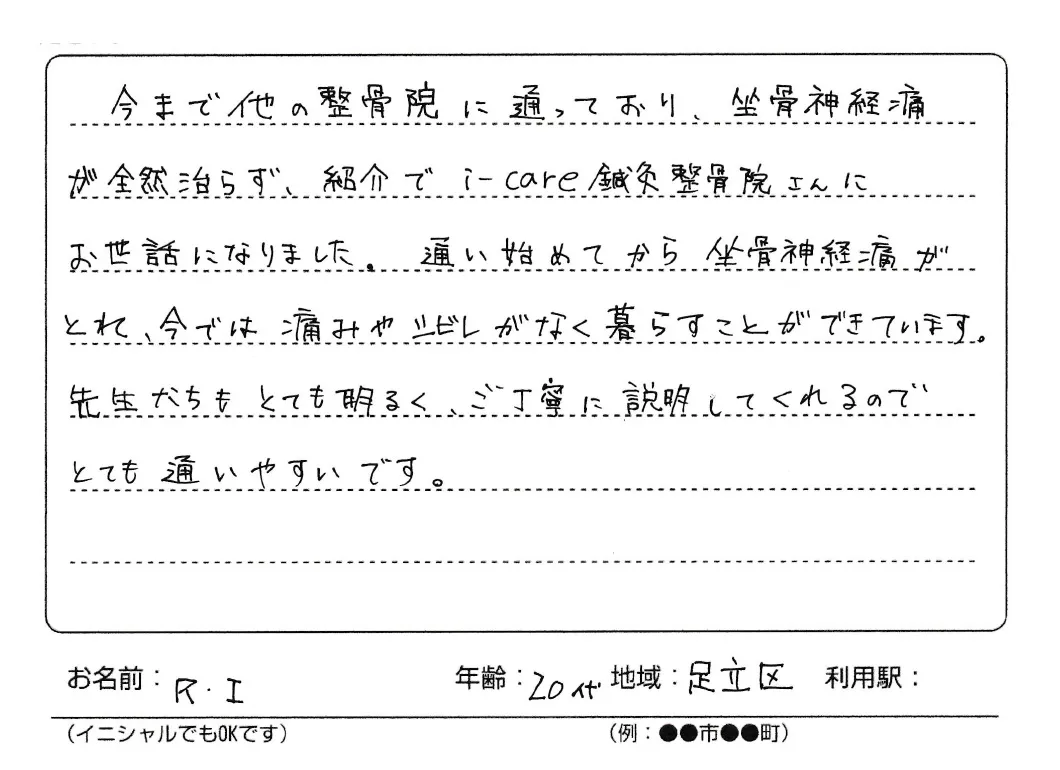 今まで他の整骨院に通っており、坐骨神経痛
が全然治らず、紹介でi-care鍼灸整骨院さんに
お世話になりました。通い始めてから坐骨神経痛が
とれて、今では痛みやシビレがなく暮らすことができています。
先生たちもとても明るく、ご丁寧に説明してくれるので
とても通いやすいです。
お名前：R・I 年齢：20代 地域：足立区 利用駅：
(イニシャルでもOKです) (例：●●市●●町)